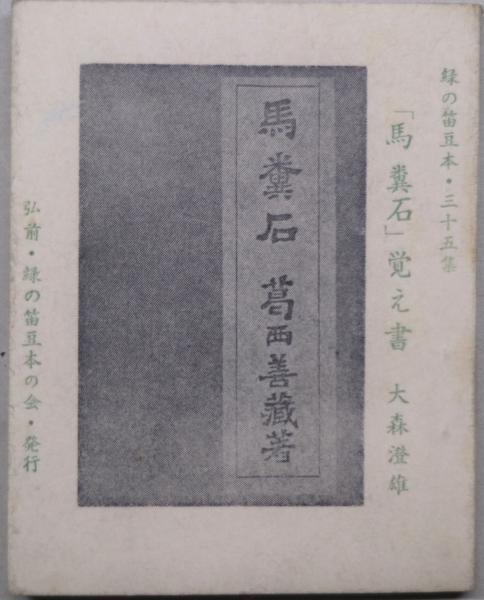 緑の笛豆本・三十五集
「馬糞石」覚え書　大森澄雄
馬糞石　葛西善藏著
弘前・緑の笛豆本の会・発行